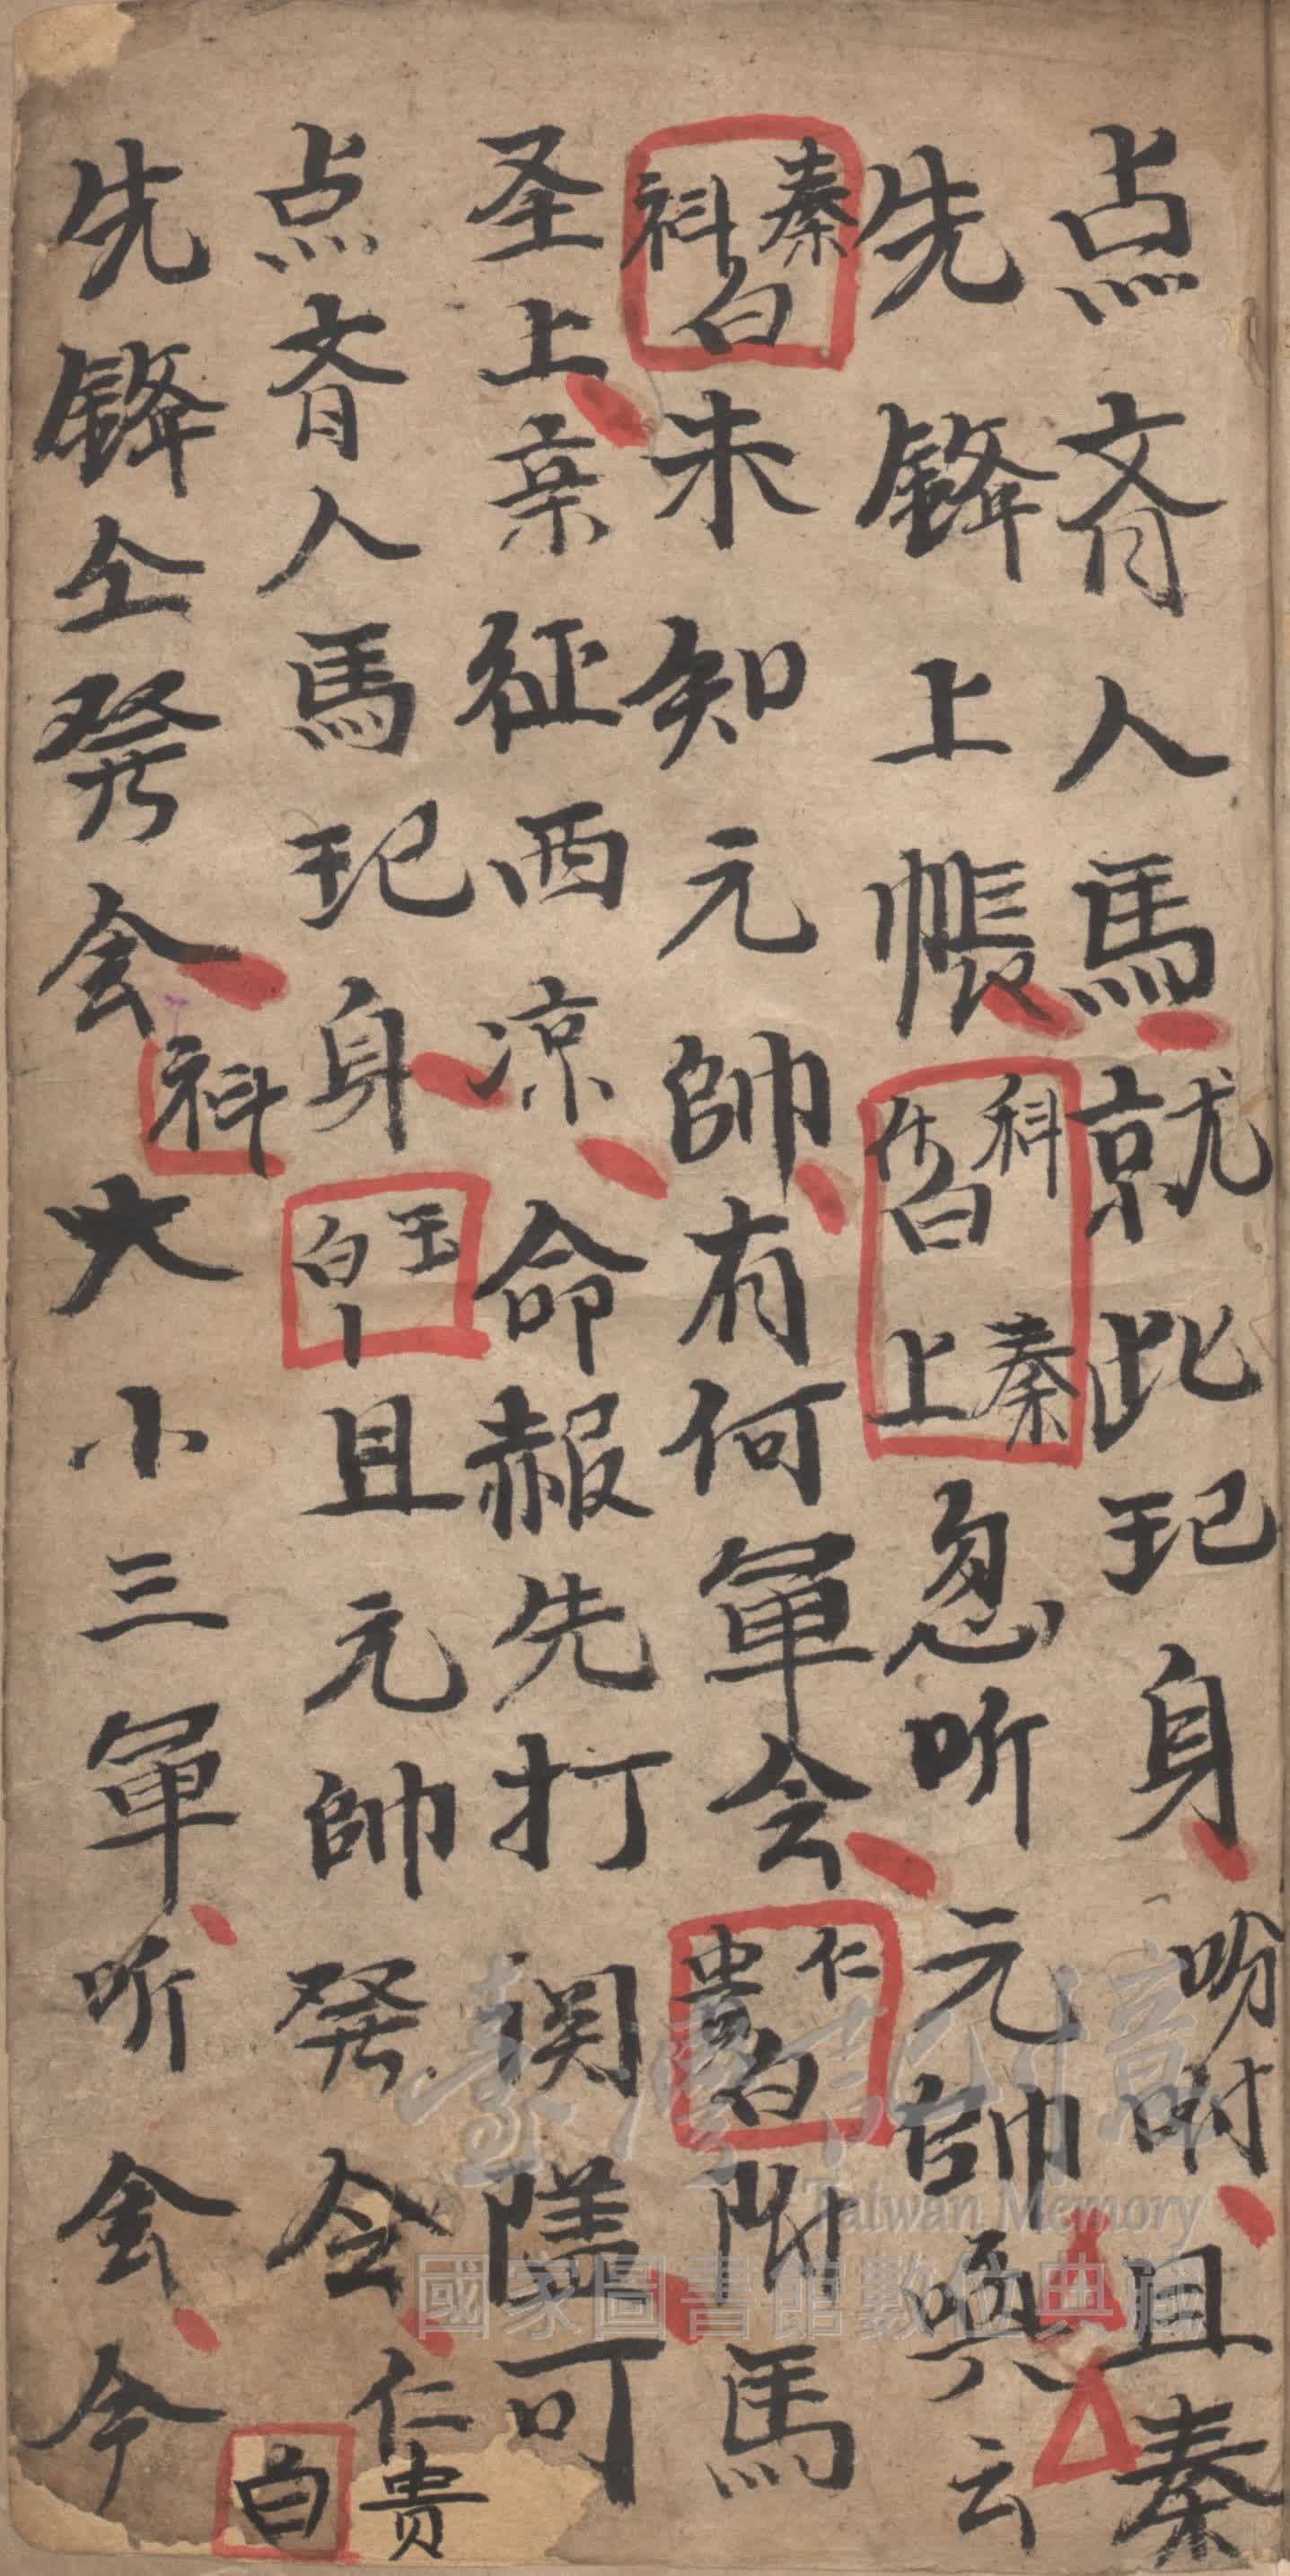 点齐人馬就此𤣩身吩咐且秦
先鋒上帳科介白秦上忽听元帥喚云
秦科白未知元帥有何軍令仁贵白附馬
圣上業征西凉命赧先打関隘可
点齐人馬起身王白且元帥發令仁贵白
先鋒仝發令科大小三軍听令今
臺灣記憶
Taiwan Memory
國家圖書館數位典藏